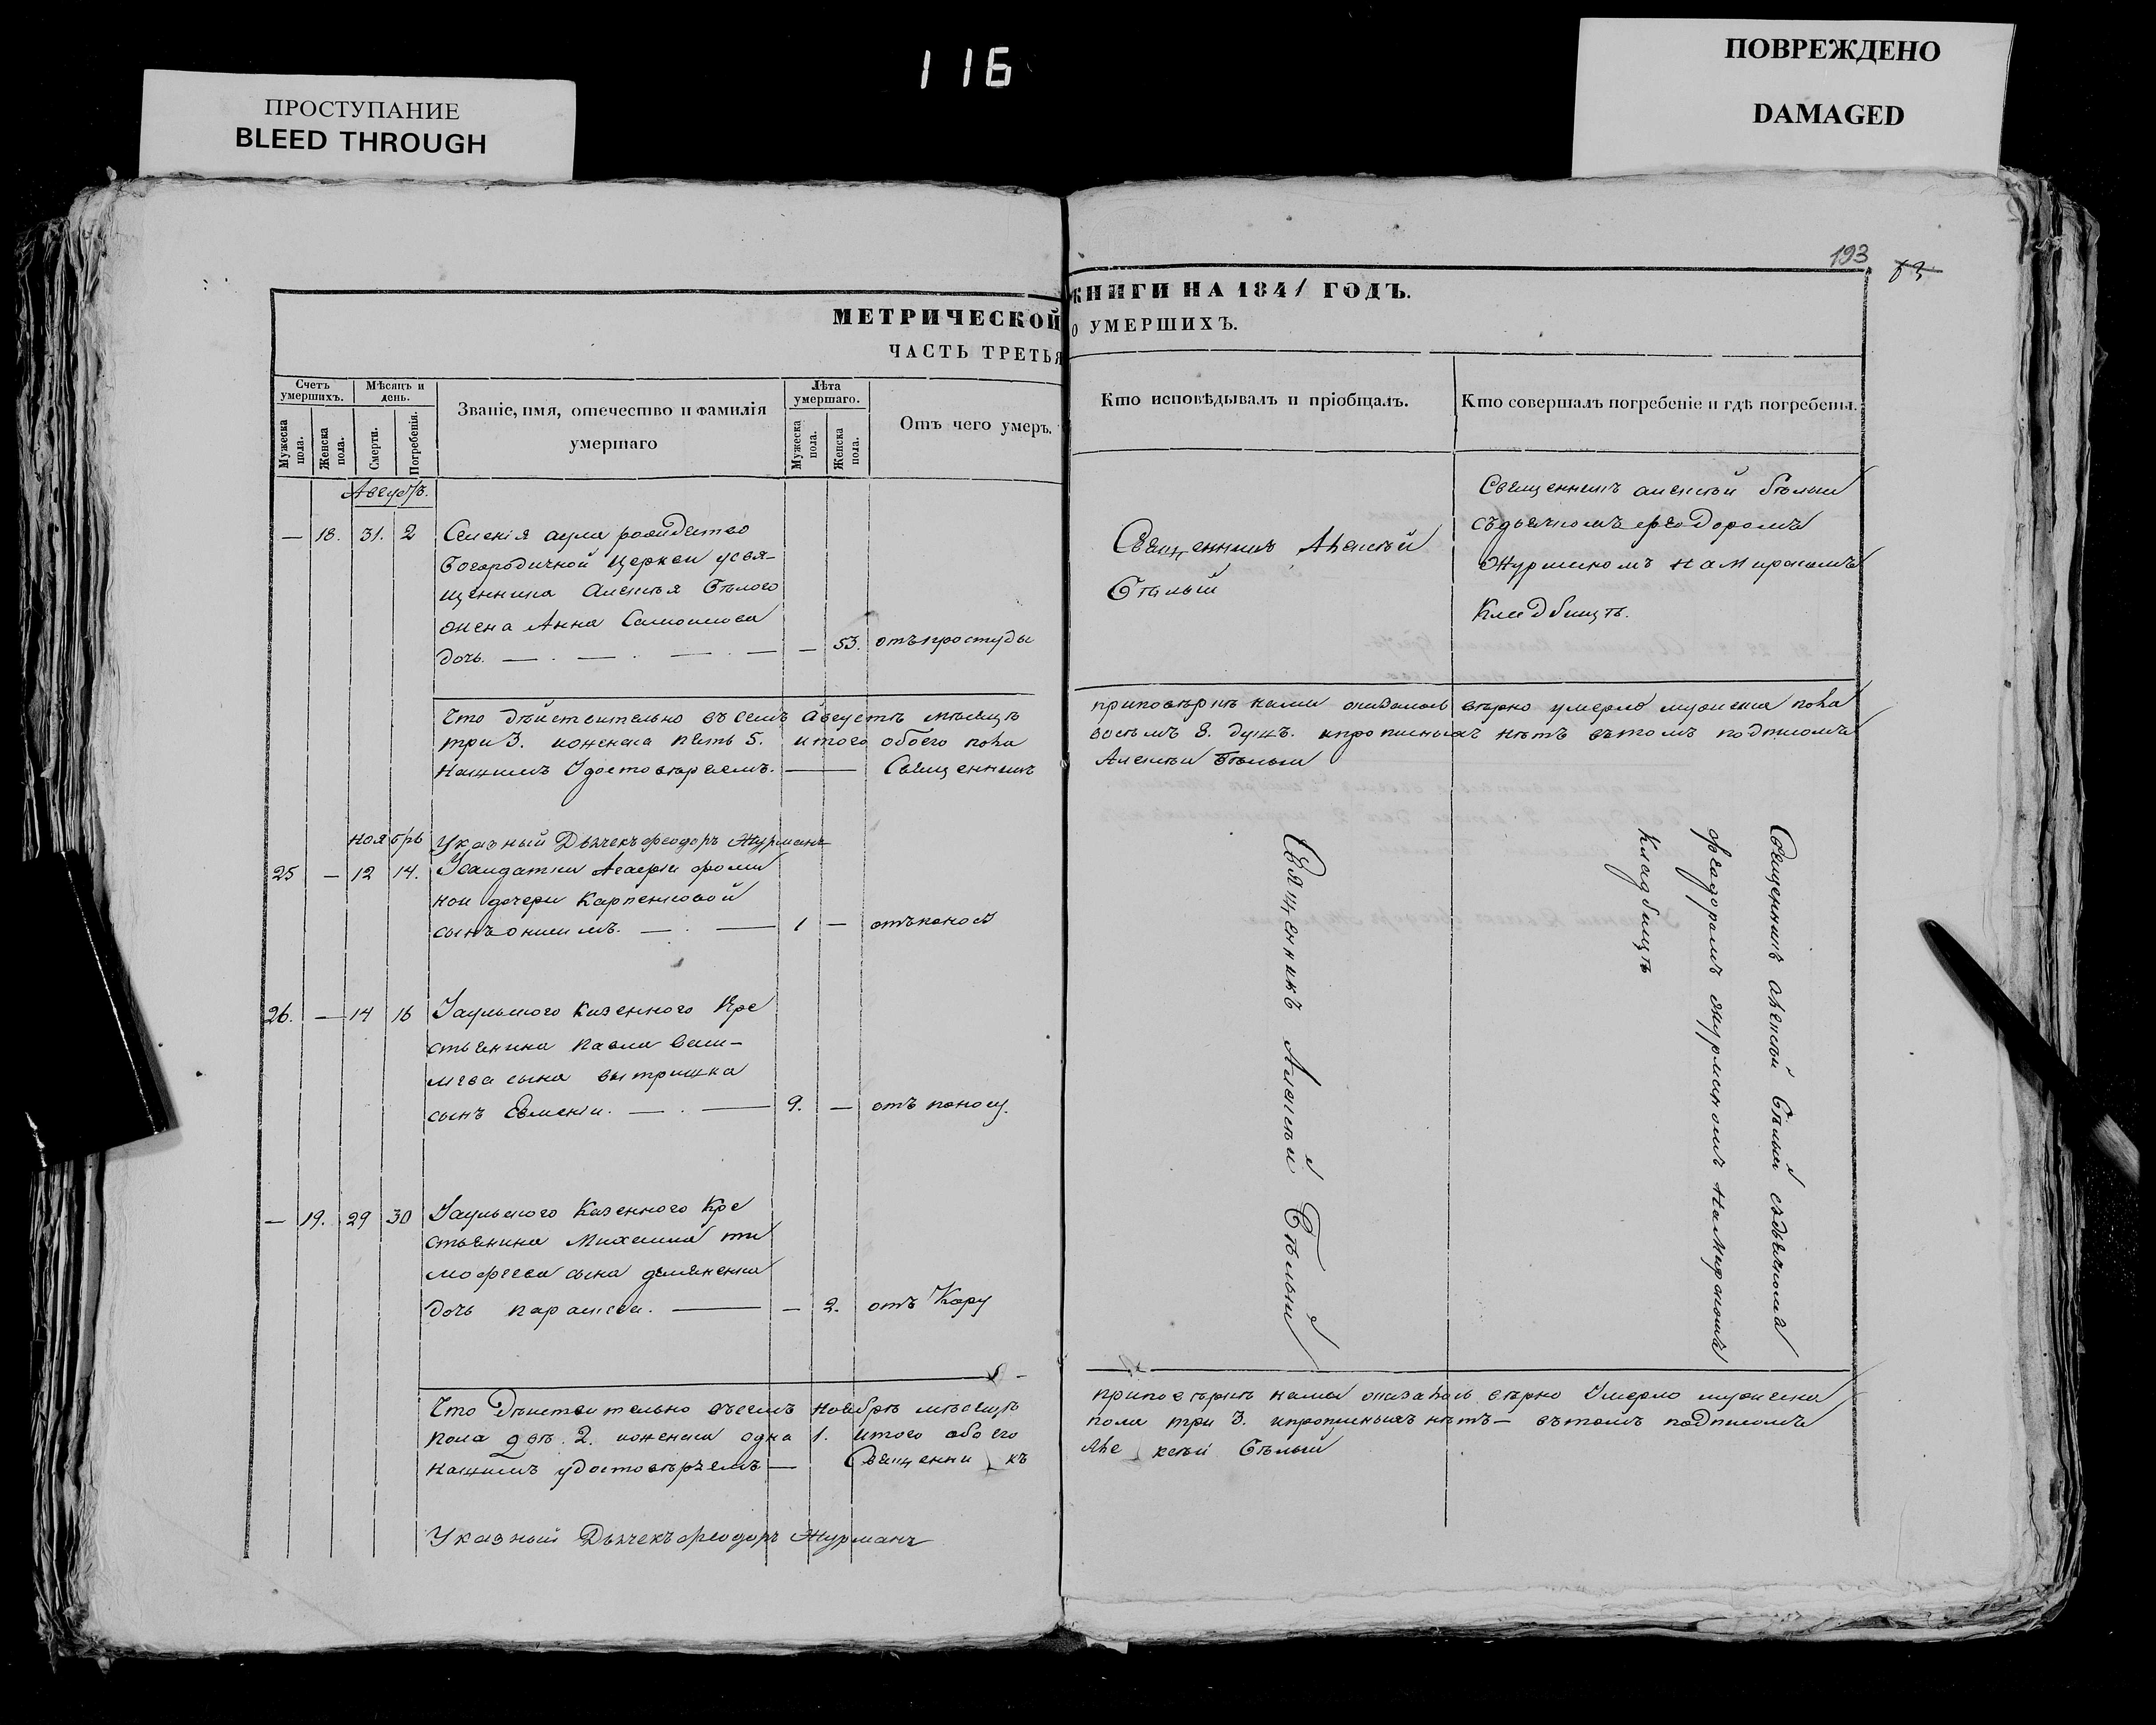 116
ПРОСТУПАНИЕ
BLEED THROUGH
ПОВРЕЖДЕНО
DAMAGED
193
МЕТРИЧЕСКОЙ
ЧАСТЬ ТРЕТЬЯ
КНИГИ НА 1841 ГОДЪ.
О УМЕРШИХЪ.
Счетъ умершихъ.
Мужеска пола.
Женска пола.
Мѣсяцъ и день.
Смерти.
Погребенія.
Званіе, имя, отечество и фамилія
умершаго
Лѣта умершаго.
Мужеска пола.
Женска пола.
Отъ чего умеръ.
Кто исповѣдывалъ и пріобщалъ.
Кто совершалъ погребеніе и гдѣ погребены.
Августъ.
— 18. 31. 2 Селенія аула рождество
Богородичной церкви усвя-
щенника алексѣя Бѣлого
жена Анна Самоилова
дочь. — — 53. отъ простуды
Священникъ Алексѣй
Бѣлый
Священникъ алексѣй бѣлый
съдьячкомъ феодоромъ
Журманомъ на мирскомъ
кладбищѣ.
Что дѣйствительно въ семъ августѣ мѣсяцѣ
три 3. иженска пять 5. итого обоего пола
нашимъ удостовѣряемъ. — Священникъ
приповѣркѣ нами оказалось вѣрно умерло мужеска пола
восемъ 8. душъ. ипрописныхъ нѣтъ вътомъ подписомъ
Алексѣй Бѣлый
Указный Дьячекъ феодоръ Журманъ
ноябрь
25 — 12 14. Усолдатки
ной дочери Карпенковой
сынъ онисимъ. — 1 — отъ поноса
26. — 14 16 Уаульского казенного Кре
стьянина павла васи-
льева сына
сынъ — 9. — отъ поносу.
— 19. 29 30 Уаульского казенного Кре
стьянина Михаила ти
мофеева сына
дочь параскева. — — 2. отъ Кору
Священникъ Алексѣй Бѣлый
Священникъ алексѣй Бѣлый съдьячкомъ
феодоромъ журманомъ на мирскомъ
кладбищѣ
Что Дѣйствительно въсемъ ноябрѣ мѣсяцѣ
пола двѣ 2. иженска одна 1. итого обоего
нашимъ удостовѣряемъ — Священникъ
приповѣркѣ нами оказалось вѣрно Умерло мужеска
пола три 3. ипрописныхъ нѣтъ — вътомъ подписомъ
Алексѣй Бѣлый
Указный Дьячекъ феодоръ Журманъ